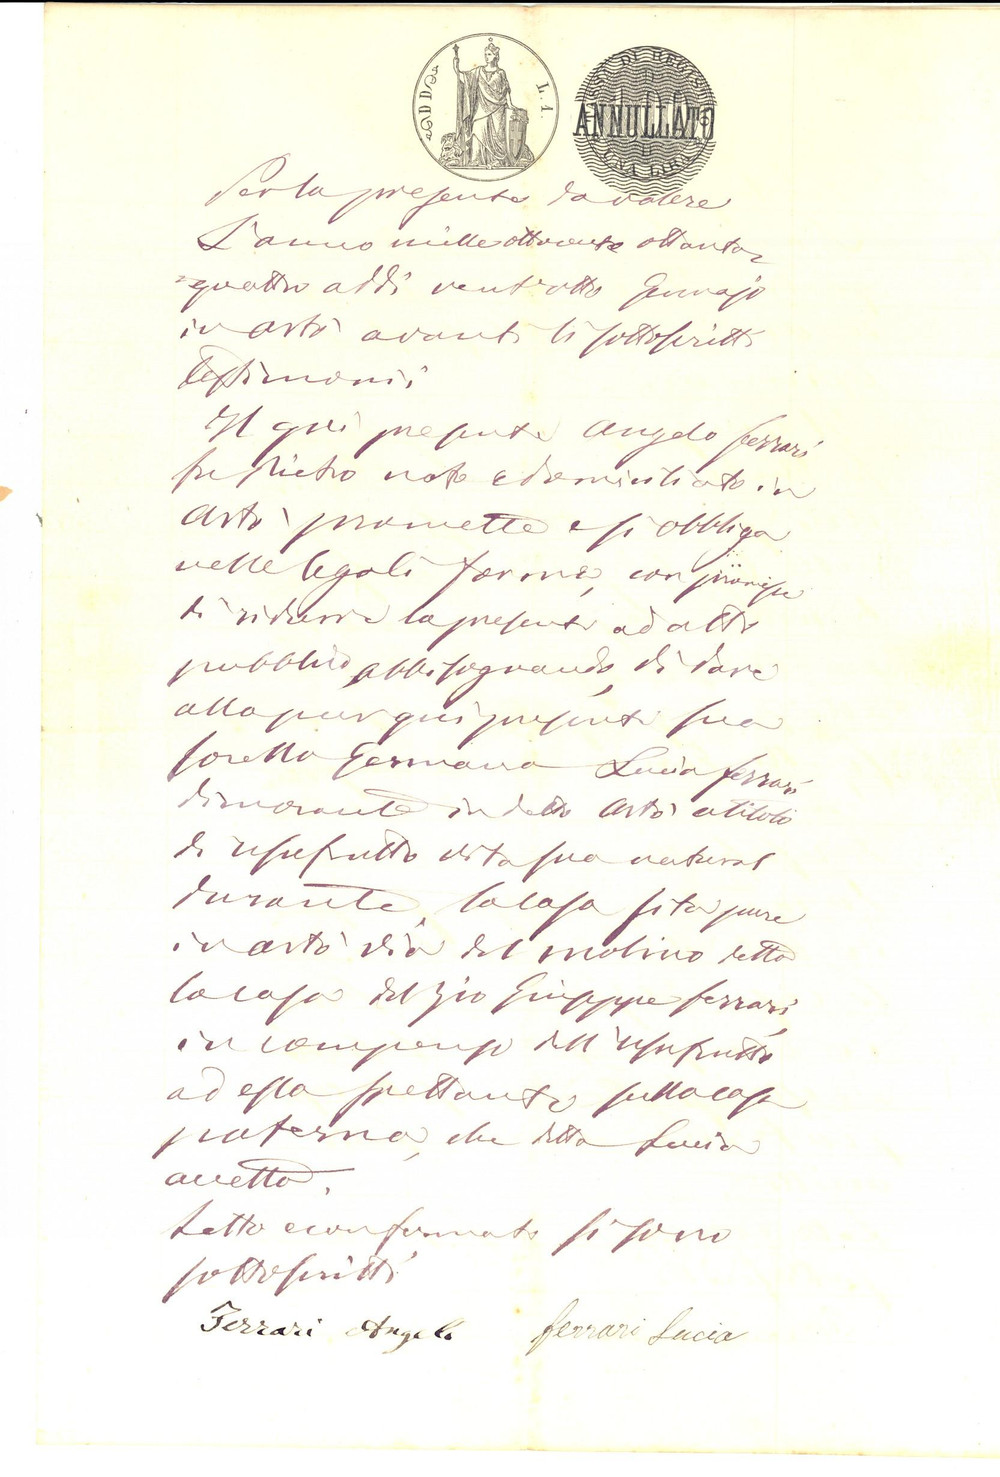 DD L. 1.
ANNULLATO
Per la presente da valere
L'anno mille ottocento ottanta
quattro addi ventiotto Gennajo
in Artò avanti li sottoscritti
testimonii
Il qui presente Angelo Ferrari
fu Pietro noto e domiciliato in
Artò promette e si obbliga
nelle legali forme, con promessa
di ridurre la presente ad atto
pubblico abbisognando, di dare
alla pur qui presente sua
sorella germana Lucia Ferrari
dimorante in detto Artò a titolo
di usufrutto vita sua natural
durante, la casa sita pure
in Artò via del Molino detta
la casa del Zio Giuseppe Ferrari,
in compenso dell'usufrutto
ad essa spettante sulla casa
paterna, che detta Lucia
accetta.
Letto e confermato si sono
sottoscritti
Ferrari Angelo Ferrari Lucia